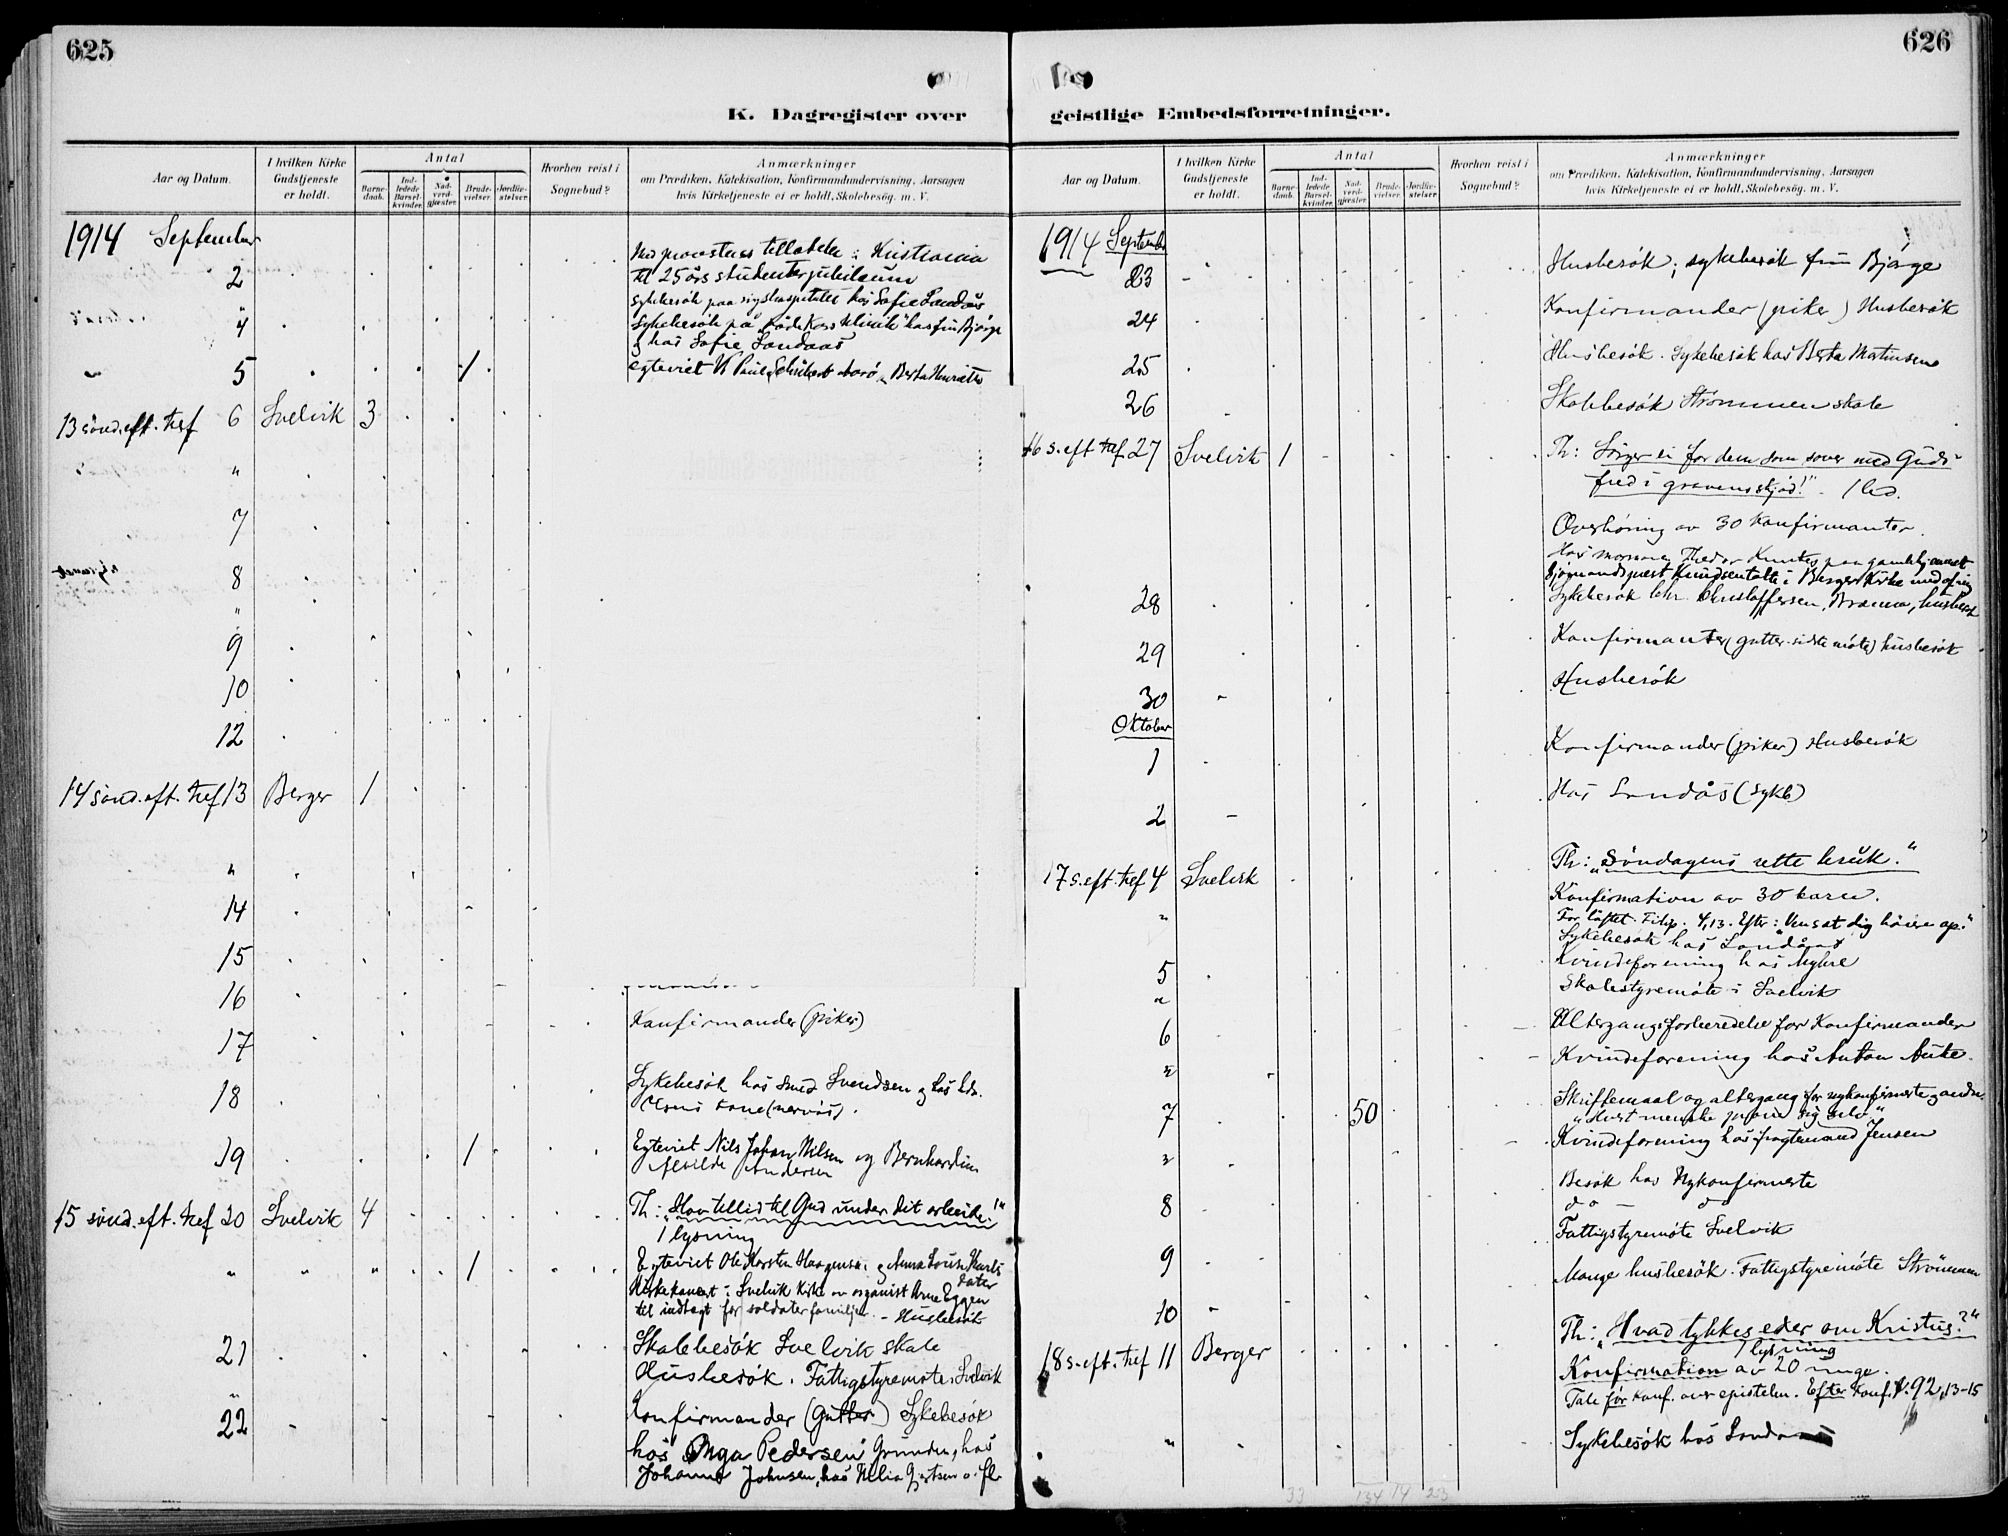 625
K. Dagregister over
Aar og Datum.
I hvilken Kirke Gudstjeneste er holdt.
Antal
Barnedaab.
Indledede Barselkvinder.
Nadverdgjæster.
Brudevielser.
Jordfæstelser.
Hvorhen reist i Sognebud?
Anmærkninger
om Prædiken, Katekisation, Konfirmandundervisning, Aarsagen
hvis Kirketjeneste ei er holdt, Skolebesøg. m. V.
1914 September
2 Med provstens tilladelse i Kristiania
til 25 års studenterjubilæum
sykebesök paa rigshospitalet hos Sofie Landås
4 Sykebesök på Röde Kors Klinik hos fru Bjørge
og hos Sofie Landaas
" 5 1 egteviet
13 sönd. eft. tref 6 Svelvik 3
"
7
8
"
9
10
12
14 sönd. eft. tref 13 Berger 1
"
14
15
16
Konfirmander (piker)
17
18 Sykebesök hos Smed Svendsen og hos
kone (nervös).
19 1 Egteviet Nils Johan Nilsen og Bernhardine
Alvilde Andersen
15 sönd. eft. tref 20 Svelvik 4 Th: "Hav tillid til Gud under dit arbeide."
1 lysning
" " " 1 Egteviet Ole Karsten Haagensen og Anna Louise Karls
dater
Kirkekonsert i Svelvik Kirke av organist Arne Eggen
til indtægt for soldaterfamilier. - Husbesök
21 Skolebesök Svelvik skole
" Husbesök. Fattigstyremöte i Svelvik
22 Konfirmander (gutter) Sykebesök
hos Inga Pedersen Grunden, hos
Johanne Johnsen, hos o. fl.
626
geistlige Embedsforretninger.
Aar og Datum.
I hvilken Kirke Gudstjeneste er holdt.
Antal
Barnedaab.
Indledede Barselkvinder.
Nadverdgjæster.
Brudevielser.
Jordfæstelser.
Hvorhen reist i Sognebud?
Anmærkninger
om Prædiken, Katekisation, Konfirmandundervisning, Aarsagen
hvis Kirketjeneste ei er holdt, Skolebesøg. m. V.
1914 September
23 Husbesök; sykebesök fru Bjørge
24 Konfirmander (piker) Husbesök
25 Husbesök. Sykebesök hos Berta Martinsen
26 Skolebesök Strömmen skole
16 s. eft tref. 27 Svelvik 1 Th: Sörger ei for dem som sover med Guds
fred i gravens skjød!" - 1 lys.
Overhöring av 30 konfirmanter.
paa gamlehjemmet
Sjømandsprest Knudsen talte i Berger Kirke
28 Sykebesök Christoffersen, husbesök
29 Konfirmanter (gutter sidste möte) husbesök
30 Husbesök
Oktober
1 Konfirmander (piker) Husbesök
2 Hos Landås (sykb)
17 s. eft. tref 4 Svelvik Th: "Söndagens rette bruk."
" Konfirmation av 30 barn.
For löftet. Filip. 4,13. Efter: "Uensat dig höiere op."
Sykebesök hos Landaas
5 Kvindeforening hos Myhre
" Skolestyremöte i Svelvik
6 Altergangsforberedelse for Konfirmander
" Kvindeforening hos Anton
7 50 Skriftemaal og altergang for nykonfirmerte og andre.
"Hvert menneske pröve sig selv"
" Kvindeforening hos fragtemand Jensen
8 Besök hos Nykonfirmerte
do - do
9 Fattigstyremöte Svelvik
10 Mange husbesök. Fattigstyremöte Strömmen
18 s. eft. tref 11 Berger Th: "Hvad tykkes eder om Kristus?"
1 lysning
Konfirmation av 20 unge.
Tale för konf. over epistelen. Efter konf. 92, 13-15
" Sykebesök hos Landaas
33 134 14 23